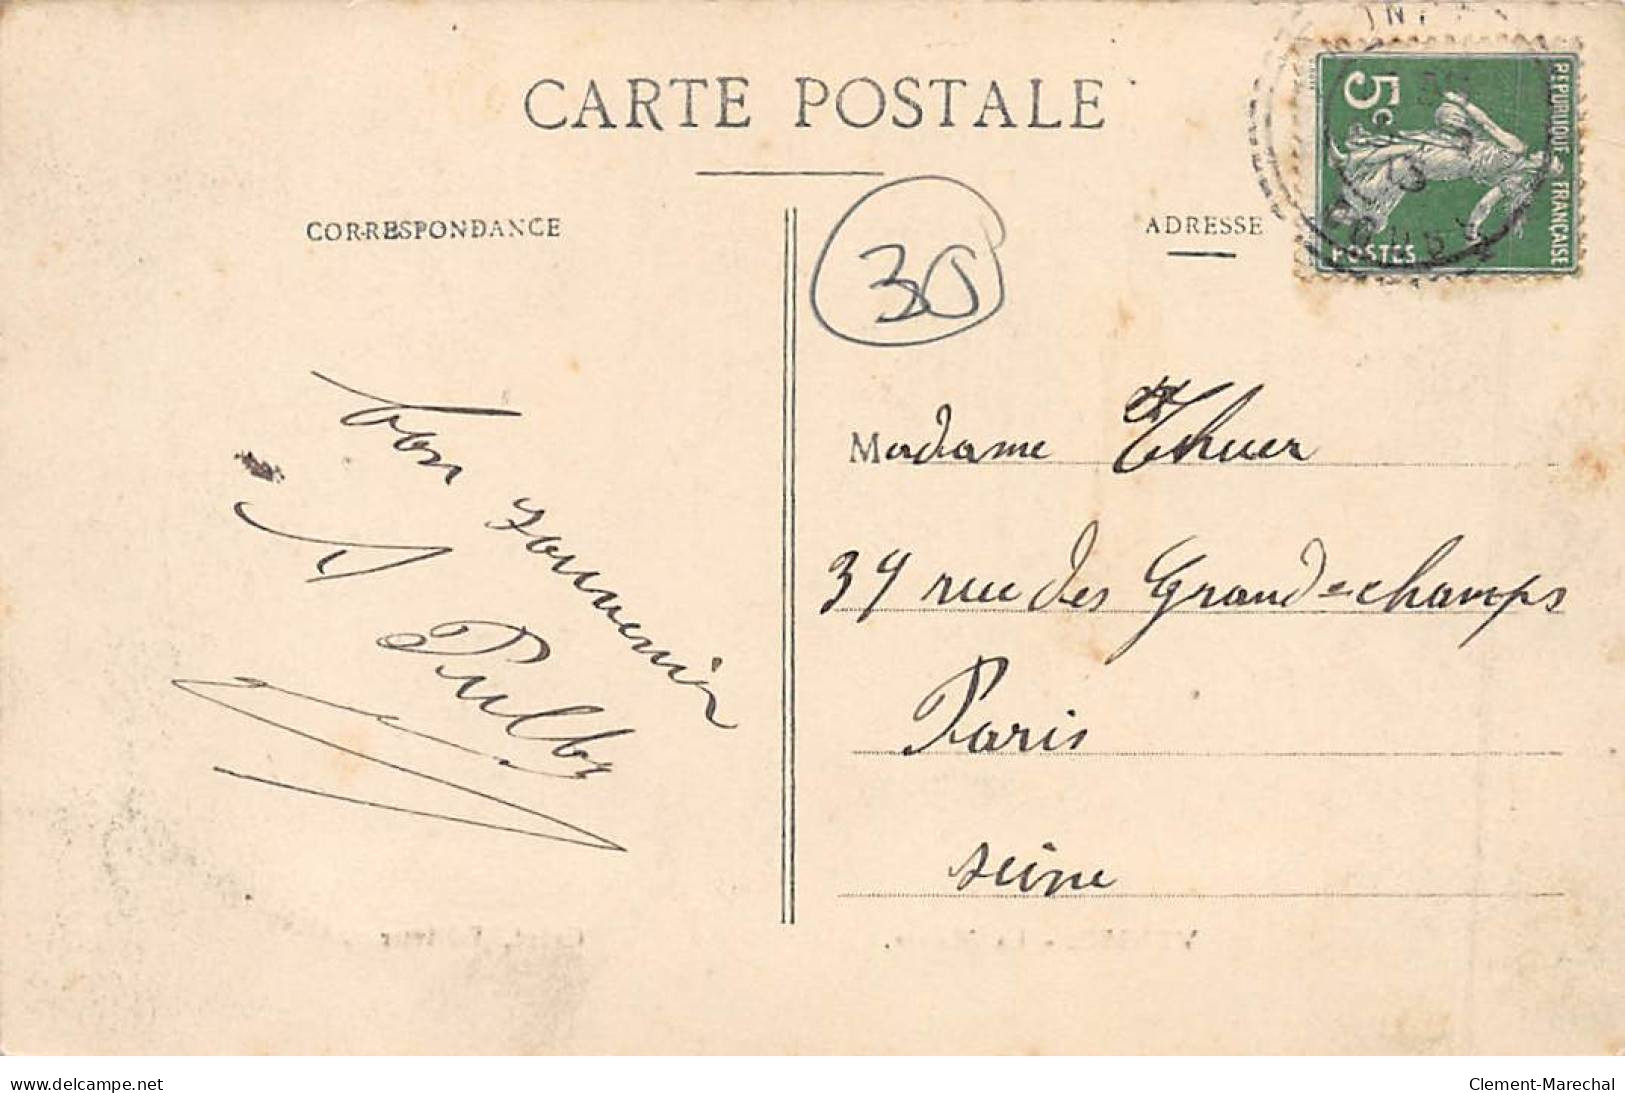 CARTE POSTALE
CORRESPONDANCE
ADRESSE
5c
REPUBLIQUE FRANÇAISE
POSTES
30
bon souvenir
Madame Thuer
39 rue des Grands-champs
Paris
seine
www.delcampe.net
Clement-Marechal